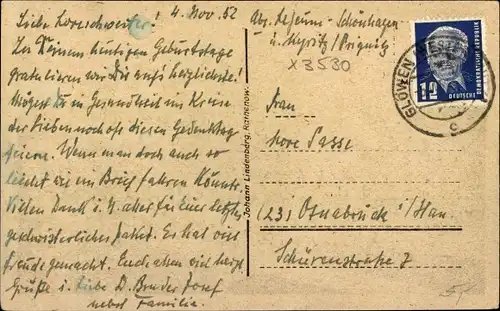 Liebe Loreschwester! 4. Nov. 52
Zu Deinem heutigen Geburtstage
gratulieren wir Dir aufs herzlichste!
Mögest Du in Gesundheit im Kreise
der Lieben noch oft diesen Gedenktag
feiern. Wenn man doch auch so
leicht wie ein Brief fahren könnte.
Vielen Dank i. V. aber für Euer letztes
geschwisterliches Paket. Es hat viel
Freude gemacht. Euch allen viel herzl.
Grüße i. Liebe D. Bruder Josef
nebst Familie.
Johann Lindenberg, Rathenow.
Abs. Schönhagen
ü. Kyritz / Prignitz
X 3530
Frau
Lore Passe
(23) Osnabrück i/Han.
Schürenstraße 7
12 DEUTSCHE
DEMOKRATISCHE REPUBLIK
GLÖWEN
c